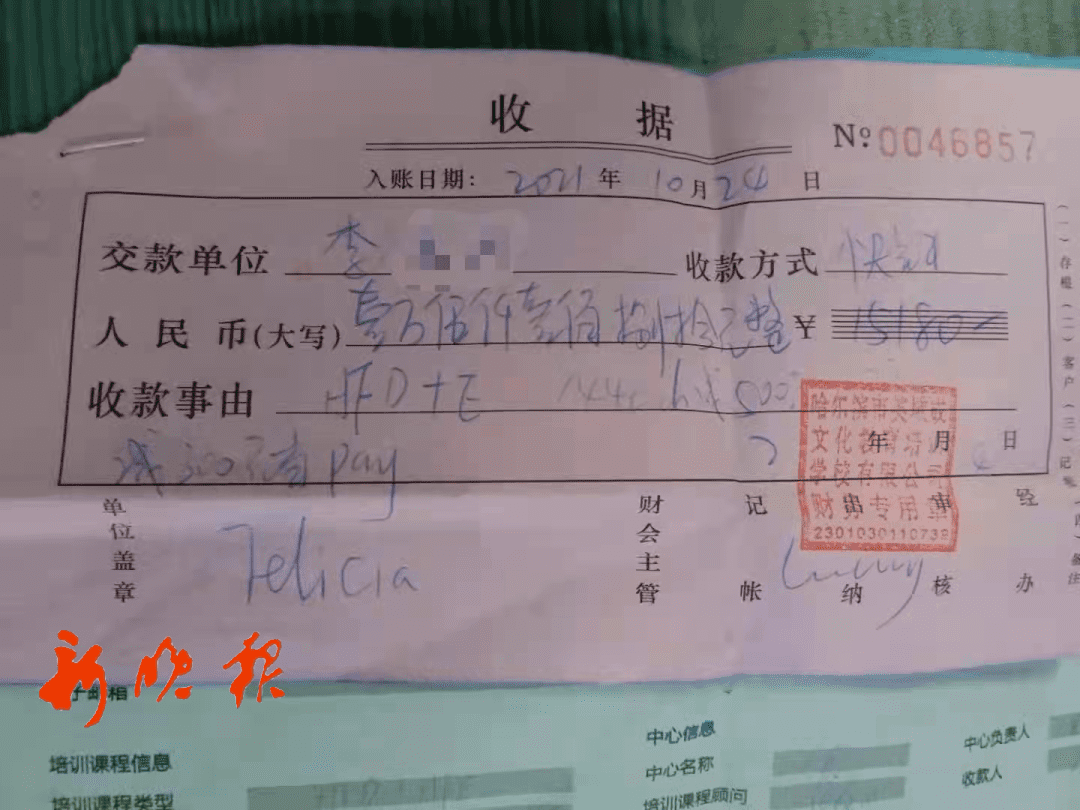 收 据
№ 0046857
入账日期: 2021 年 10 月 24 日
交款单位 李 收款方式 快钱
人民币(大写) 壹万伍仟壹佰捌拾元整 ¥ 15180-
收款事由 HFD+E
减 pay 年 月 日
哈尔滨市
文化教育培训
学校有限公司
财务专用章
2301030110738
单位盖章 财会主管 记帐 出纳 审核 经办
Felicia
(一)存根(二)客户(三)记账
新晚报
子邮箱
培训课程信息 中心信息
中心名称 中心负责人
培训课程类型 培训课程顾问 收款人